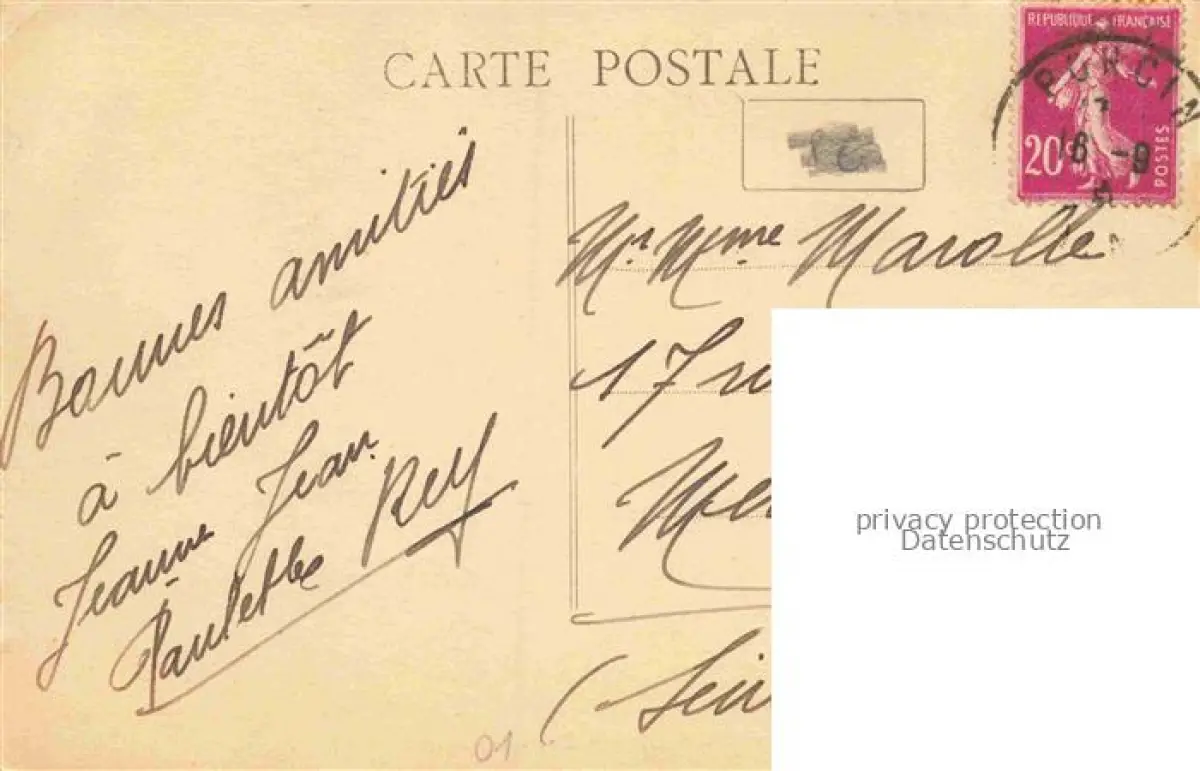 CARTE POSTALE
RÉPUBLIQUE FRANÇAISE
20c
POSTES
16 -9
Bonnes amitiés
à bientôt
Jeanne Jean
Paulette Rey
Mr Mme Marolle
17 ru
Me
(Sein
privacy protection
Datenschutz
01